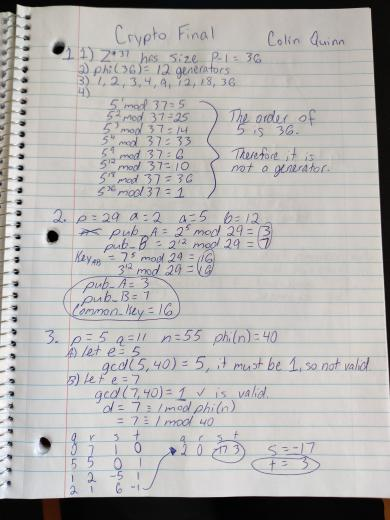 Crypto Final Colin Quinn
1. 1) Z*37 has size P-1 = 36
2) phi(36) = 12 generators
3) 1, 2, 3, 4, 9, 12, 18, 36
4)
5^1 mod 37 = 5
5^2 mod 37 = 25
5^3 mod 37 = 14
5^4 mod 37 = 33
5^9 mod 37 = 6
5^12 mod 37 = 10
5^18 mod 37 = 36
5^36 mod 37 = 1
The order of
5 is 36.
Therefore it is
not a generator.
2. p = 29 a = 2 a = 5 b = 12
pub_A = 2^5 mod 29 = 3
pub_B = 2^12 mod 29 = 7
Key_AB = 7^5 mod 29 = 16
3^12 mod 29 = 16
pub_A = 3
pub_B = 7
Common_Key = 16
3. p = 5 q = 11 n = 55 phi(n) = 40
A) let e = 5
gcd(5,40) = 5, it must be 1, so not valid.
B) Let e = 7
gcd(7,40) = 1 ✓ is valid.
d = 7 ≡ 1 mod phi(n)
= 7 ≡ 1 mod 40
q r s t
0 7 1 0
5 5 0 1
1 2 -5 1
2 1 6 -1
q r s t
2 0 -17 3
s = -17
t = 3